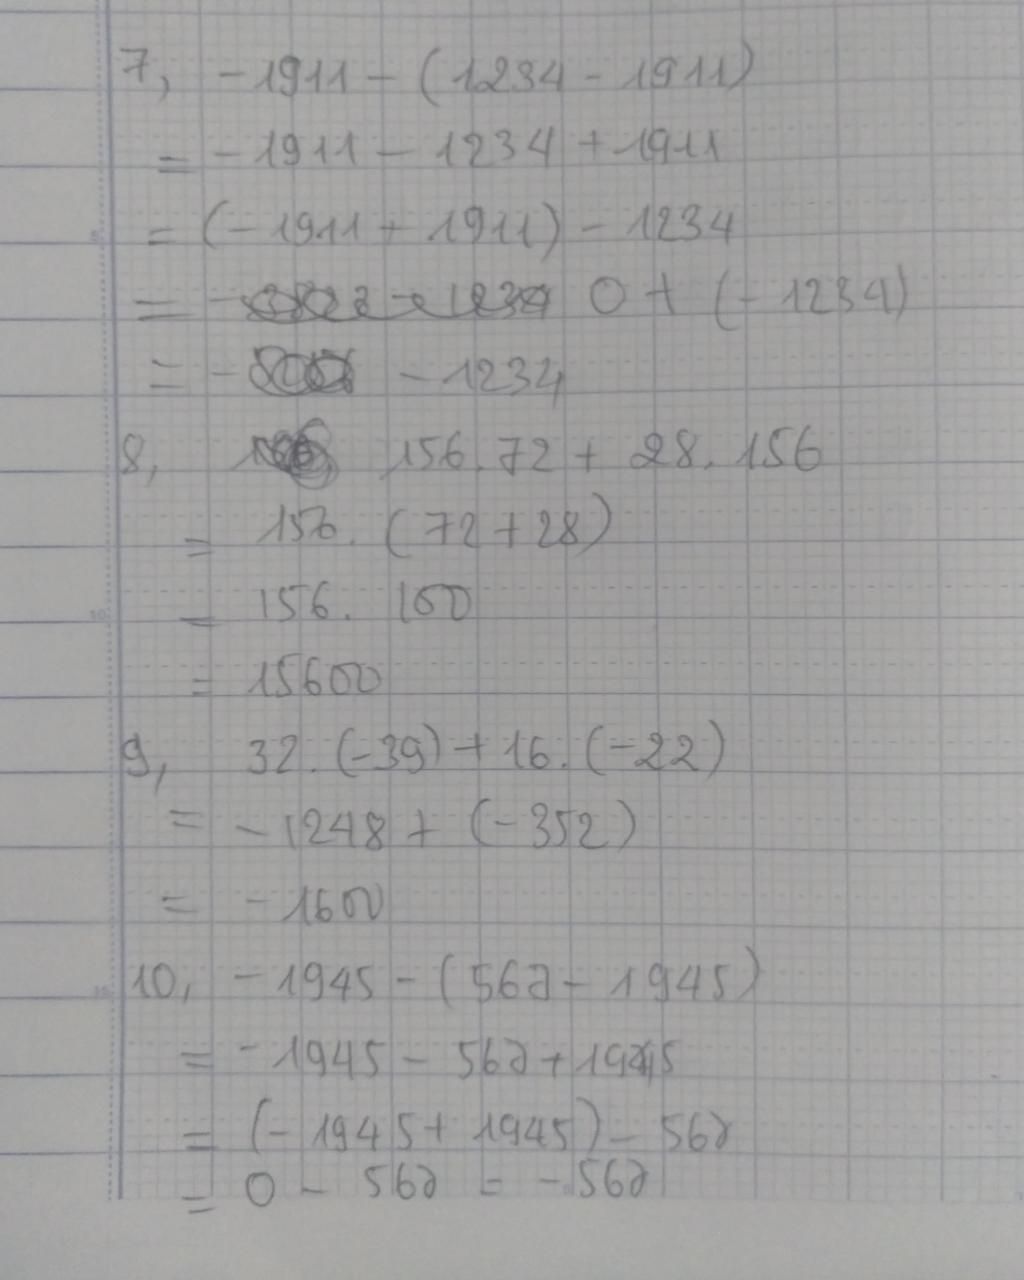 7, -1911 - (1234 - 1911)
= -1911 - 1234 + 1911
= (-1911 + 1911) - 1234
= - 0 + (-1234)
= - -1234
8, 156.72 + 28.156
= 156. (72 + 28)
= 156. 100
= 15600
9, 32.(-39) + 16.(-22)
= -1248 + (-352)
= -1600
10, -1945 - (562 - 1945)
= -1945 - 562 + 1945
= (-1945 + 1945) - 562
= 0 - 562 = -562